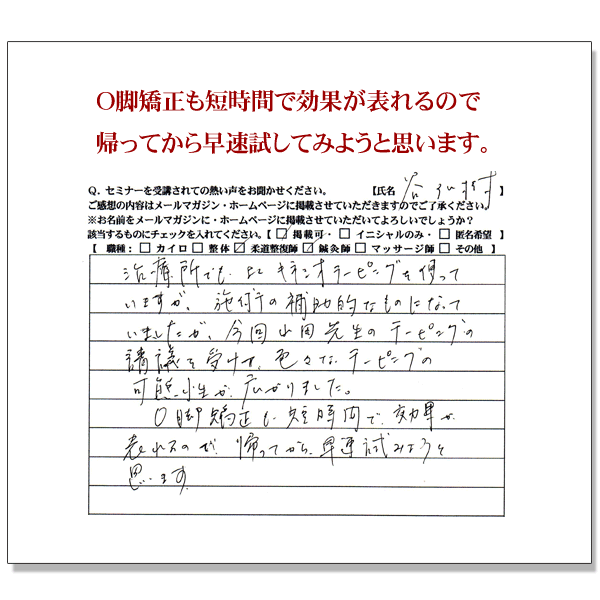 O脚矯正も短時間で効果が表れるので
帰ってから早速試してみようと思います。
Q. セミナーを受講されての熱い声をお聞かせください。 【氏名 谷 村 】
ご感想の内容はメールマガジン・ホームページに掲載させていただきますのでご了承ください。
※お名前をメールマガジン・ホームページに掲載させていただいてよろしいでしょうか?
該当するものにチェックを入れてください。【 ☑ 掲載可・ □ イニシャルのみ・ □ 匿名希望 】
【 職種: □ カイロ □ 整体 ☑ 柔道整復師 ☑ 鍼灸師 □ マッサージ師 □ その他 】
治療所でも、 キネシオテーピングを使って
いますが、施術の補助的なものになって
いましたが、今回山田先生のテーピングの
講議を受けて、色々なテーピングの
可能性が広がりました。
O脚矯正も短時間で、効果が
表れるので、帰ってから、早速試みようと
思います。